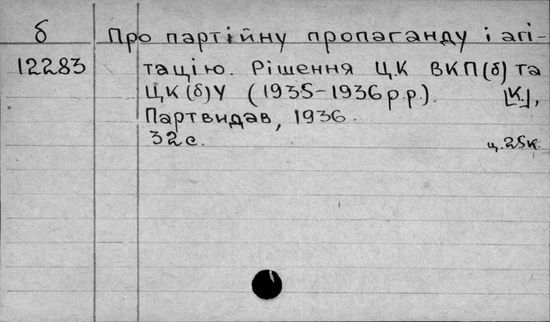 б
12283
Про партійну пропаганду і агі-
тацію. Рішення ЦК ВКП(б) та
ЦК(б)У (1935-1936 р.р.). [К],
Партвидав, 1936.
32 с. ц. 25к.